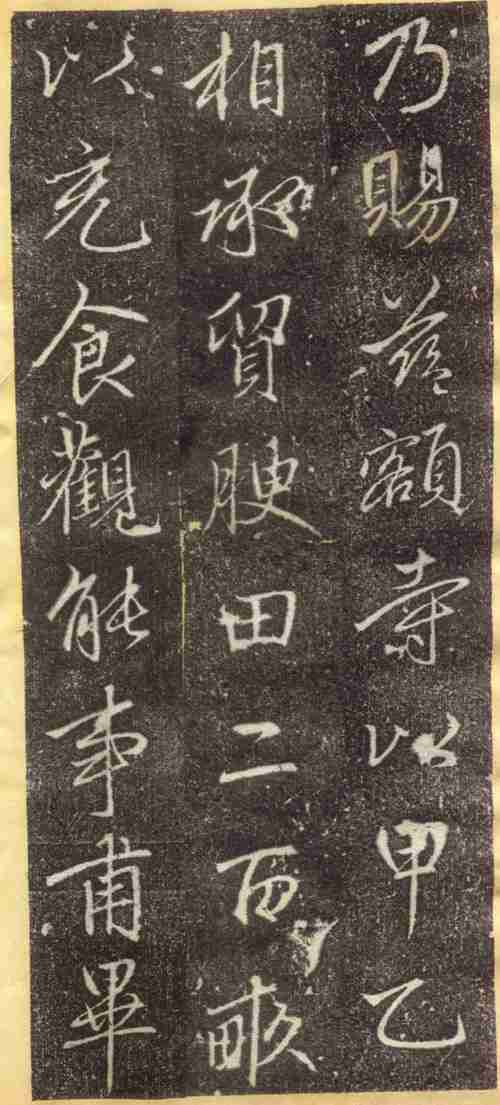 乃賜茲額寺以甲乙
相承貿腴田二百畝
以充食觀能事甫畢